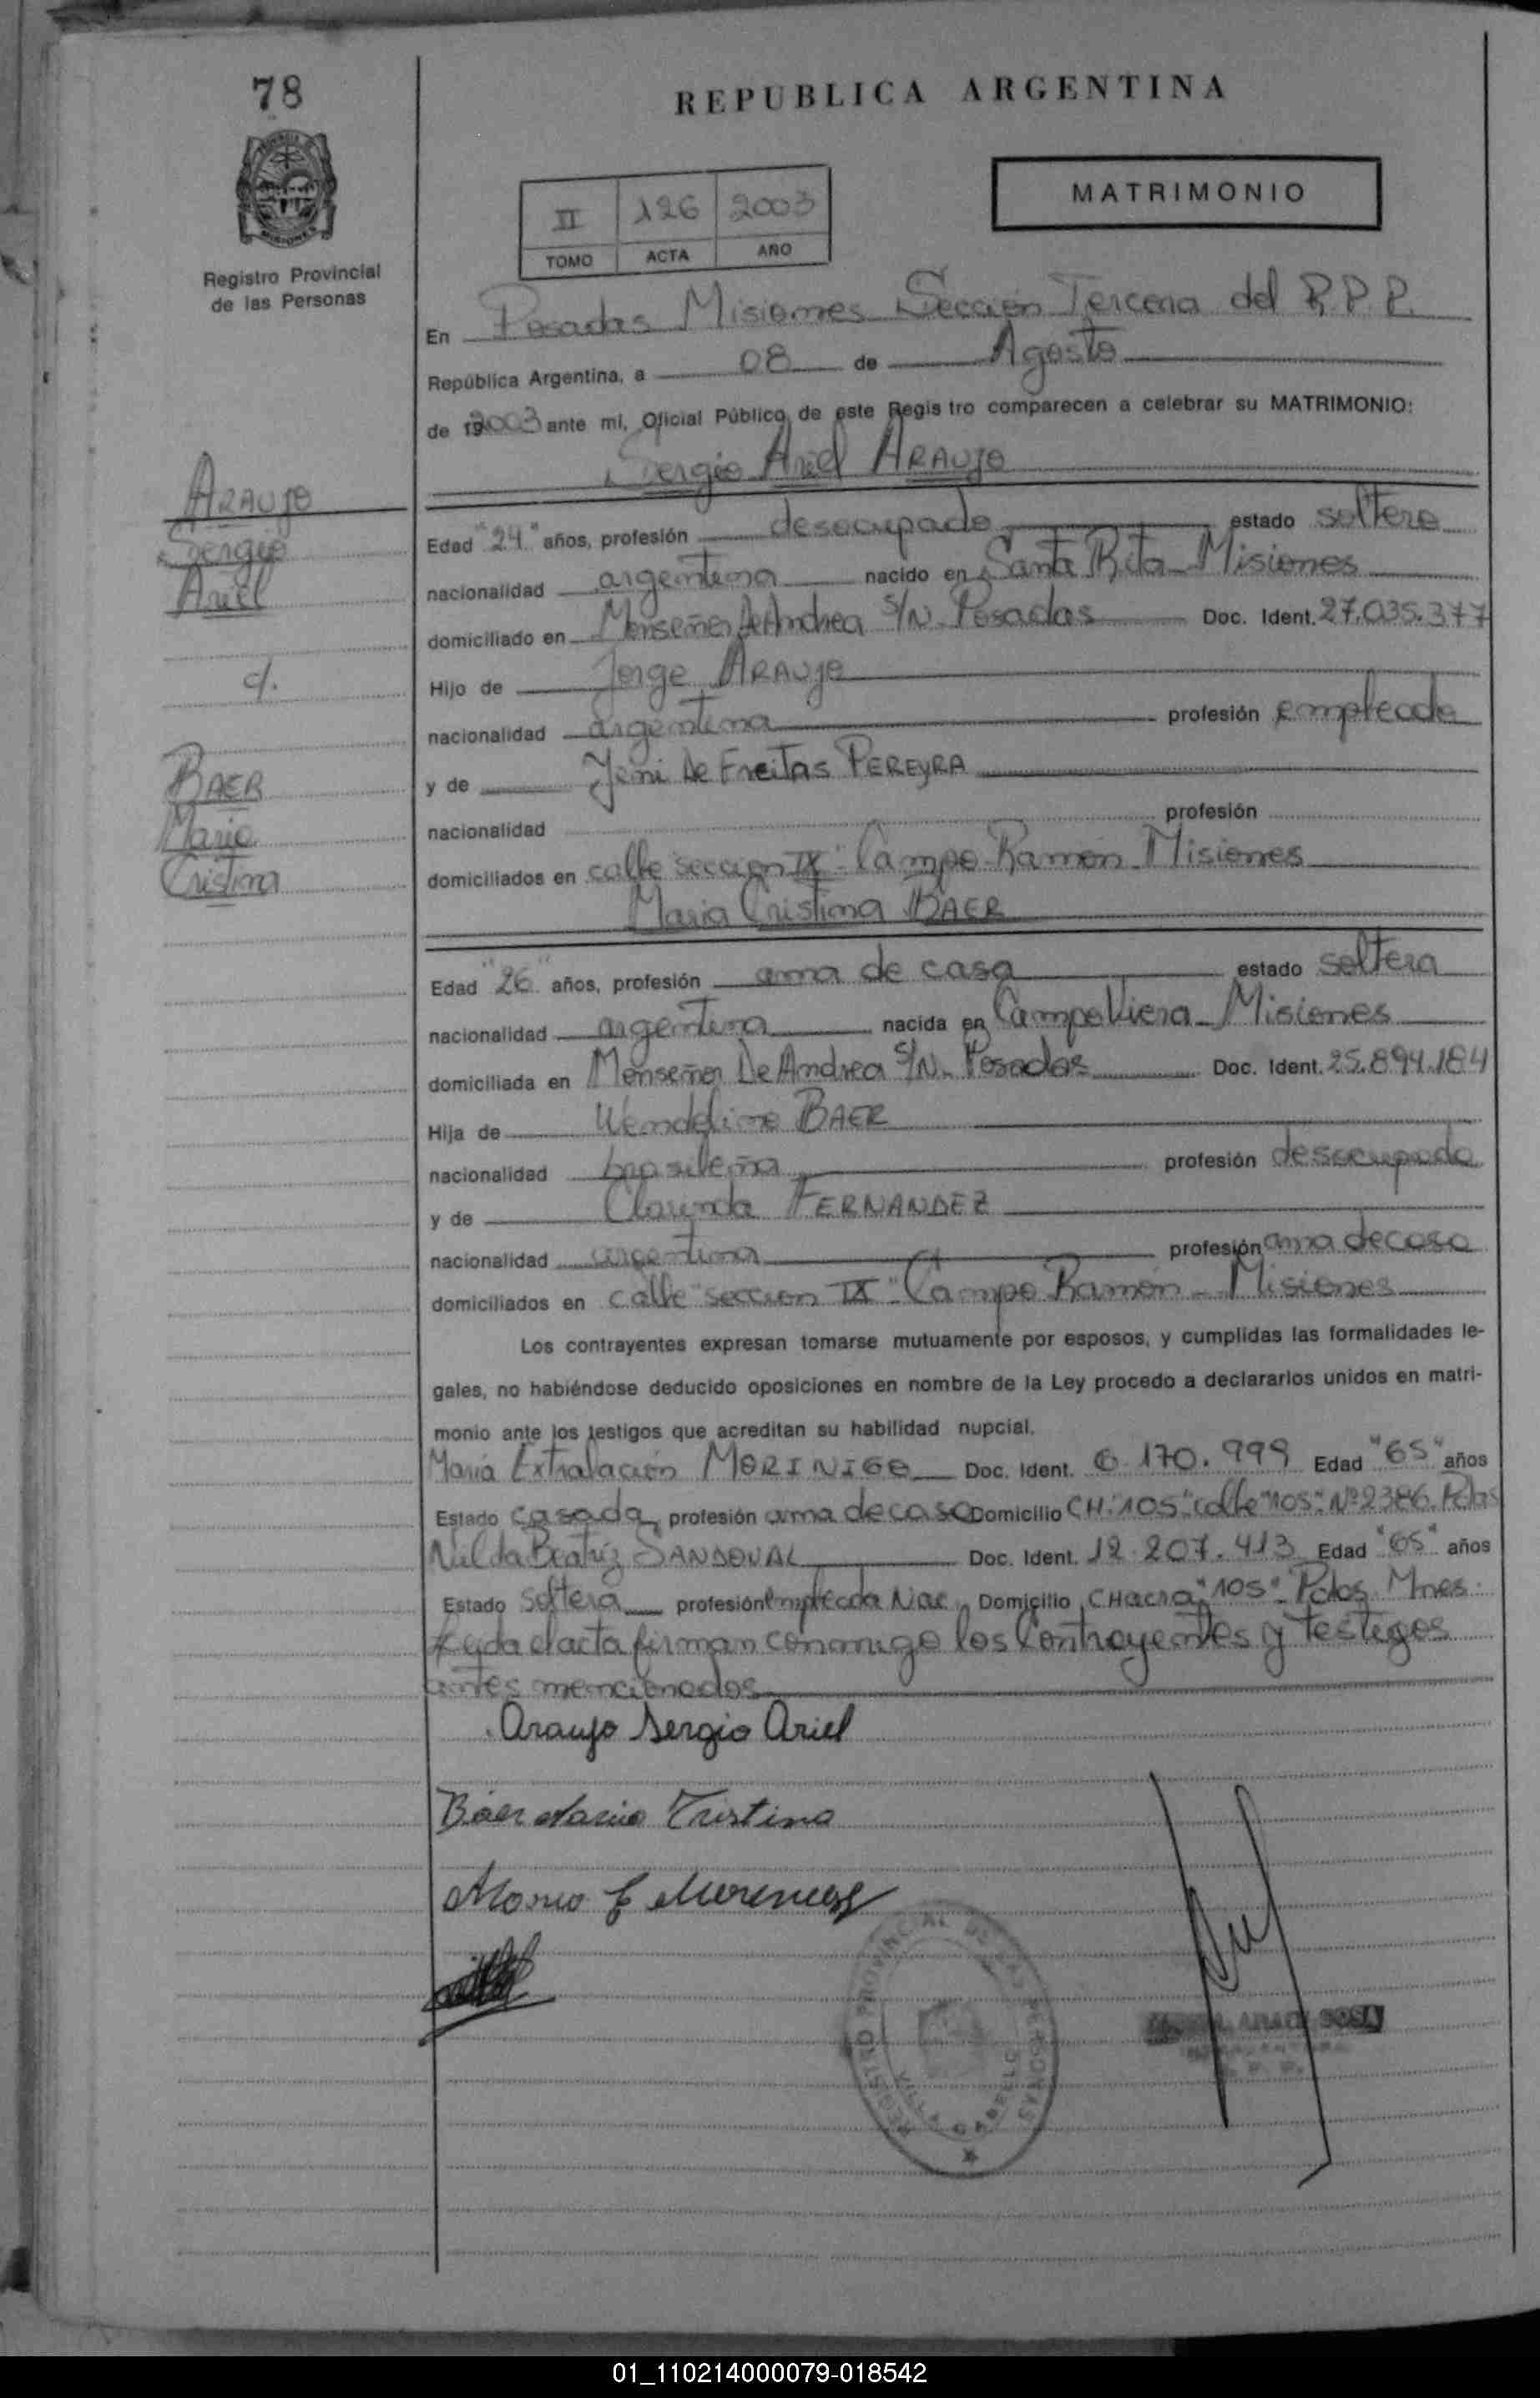 78
REPUBLICA ARGENTINA
MATRIMONIO
II 126 2003
TOMO ACTA AÑO
Registro Provincial
de las Personas
En Posadas Misiones Sección Tercera del R.P.P.
República Argentina, a 08 de Agosto
de 2003 ante mi, Oficial Público de este Regis tro comparecen a celebrar su MATRIMONIO:
Sergio Ariel ARAUJO
ARAUJO
Sergio
Ariel
c/.
BAER
Maria
Cristina
Edad "24" años, profesión desocupado estado soltero
nacionalidad argentina nacido en Santa Rita - Misiones
domiciliado en Monseñor De Andrea S/N - Posadas Doc. Ident. 27.035.377
Hijo de Jorge ARAUJO
nacionalidad argentina profesión empleado
y de Jeni De Freitas PEREYRA
nacionalidad profesión
domiciliados en calle "seccion IX" Campo Ramón - Misiones
Maria Cristina BAER
Edad "26" años, profesión ama de casa estado soltera
nacionalidad argentina nacida en Campo Viera - Misiones
domiciliada en Monseñor De Andrea S/N - Posadas Doc. Ident. 25.894.184
Hija de Wendelino BAER
nacionalidad brasileña profesión desocupado
y de Clarinda FERNANDEZ
nacionalidad argentina profesión ama de casa
domiciliados en calle "seccion IX" Campo Ramón - Misiones
Los contrayentes expresan tomarse mutuamente por esposos, y cumplidas las formalidades le-
gales, no habiéndose deducido oposiciones en nombre de la Ley procedo a declararlos unidos en matri-
monio ante los testigos que acreditan su habilidad nupcial.
María Extralación MORINIGO Doc. Ident. 6.170.999 Edad "65" años
Estado casada profesión ama de casa Domicilio CH. "105" calle "105" Nº 2386. Pdas
Nilda Beatriz SANDOVAL Doc. Ident. 12.207.413 Edad "65" años
Estado soltera profesión empleada Nac. Domicilio CHacra "105" - Pdas. Mnes.
Leida el acta firman conmigo los Contrayentes y testigos
antes mencionados
Araujo Sergio Ariel
Baer Maria Cristina
REGISTRO PROVINCIAL DE LAS PERSONAS
VILLA CABELLO
01_110214000079-018542